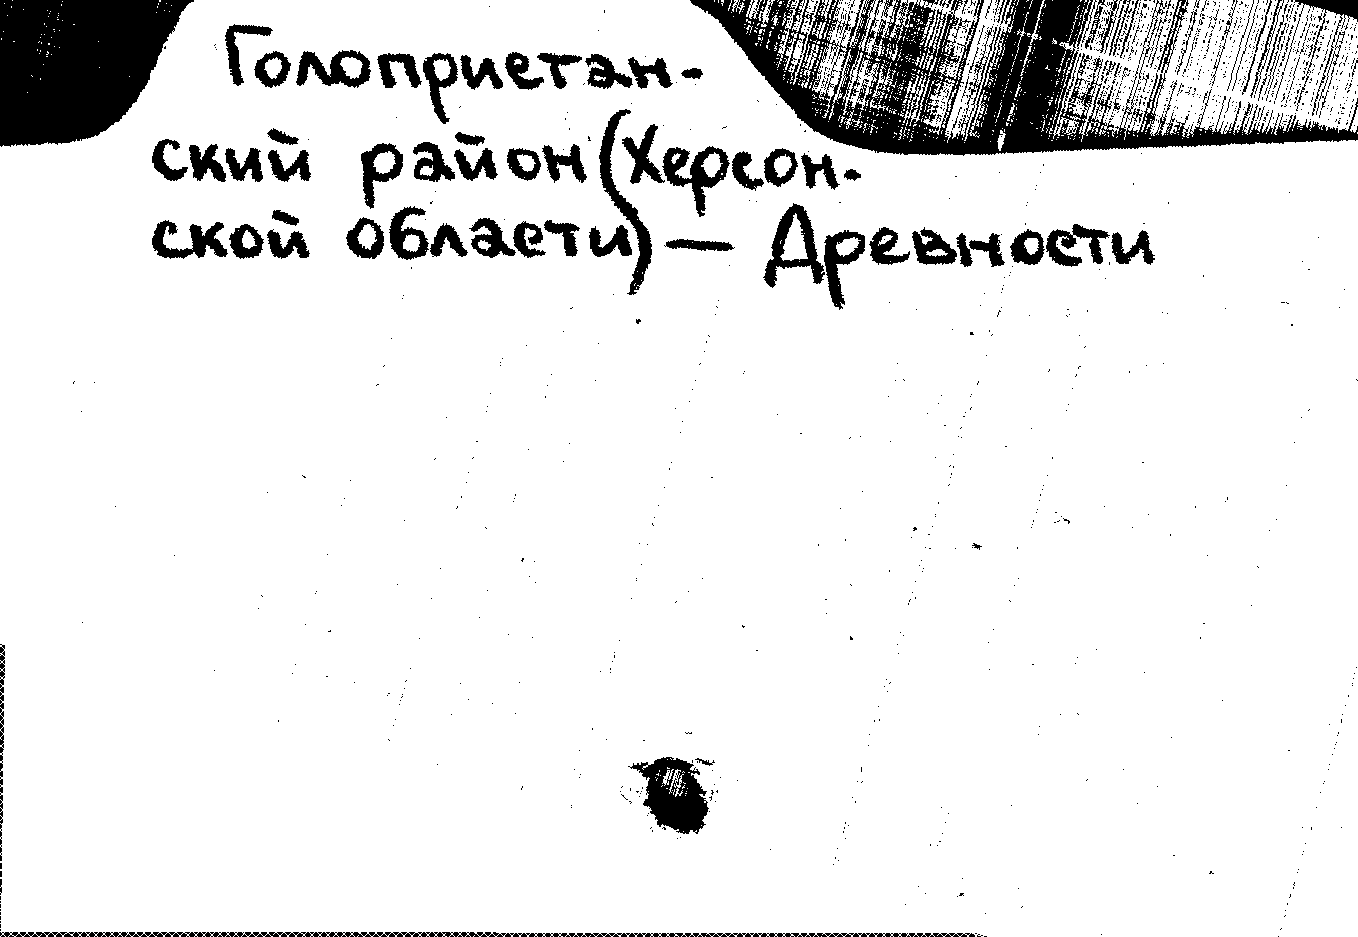 Голопристан-
ский район (Херсон-
ской области) — Древности